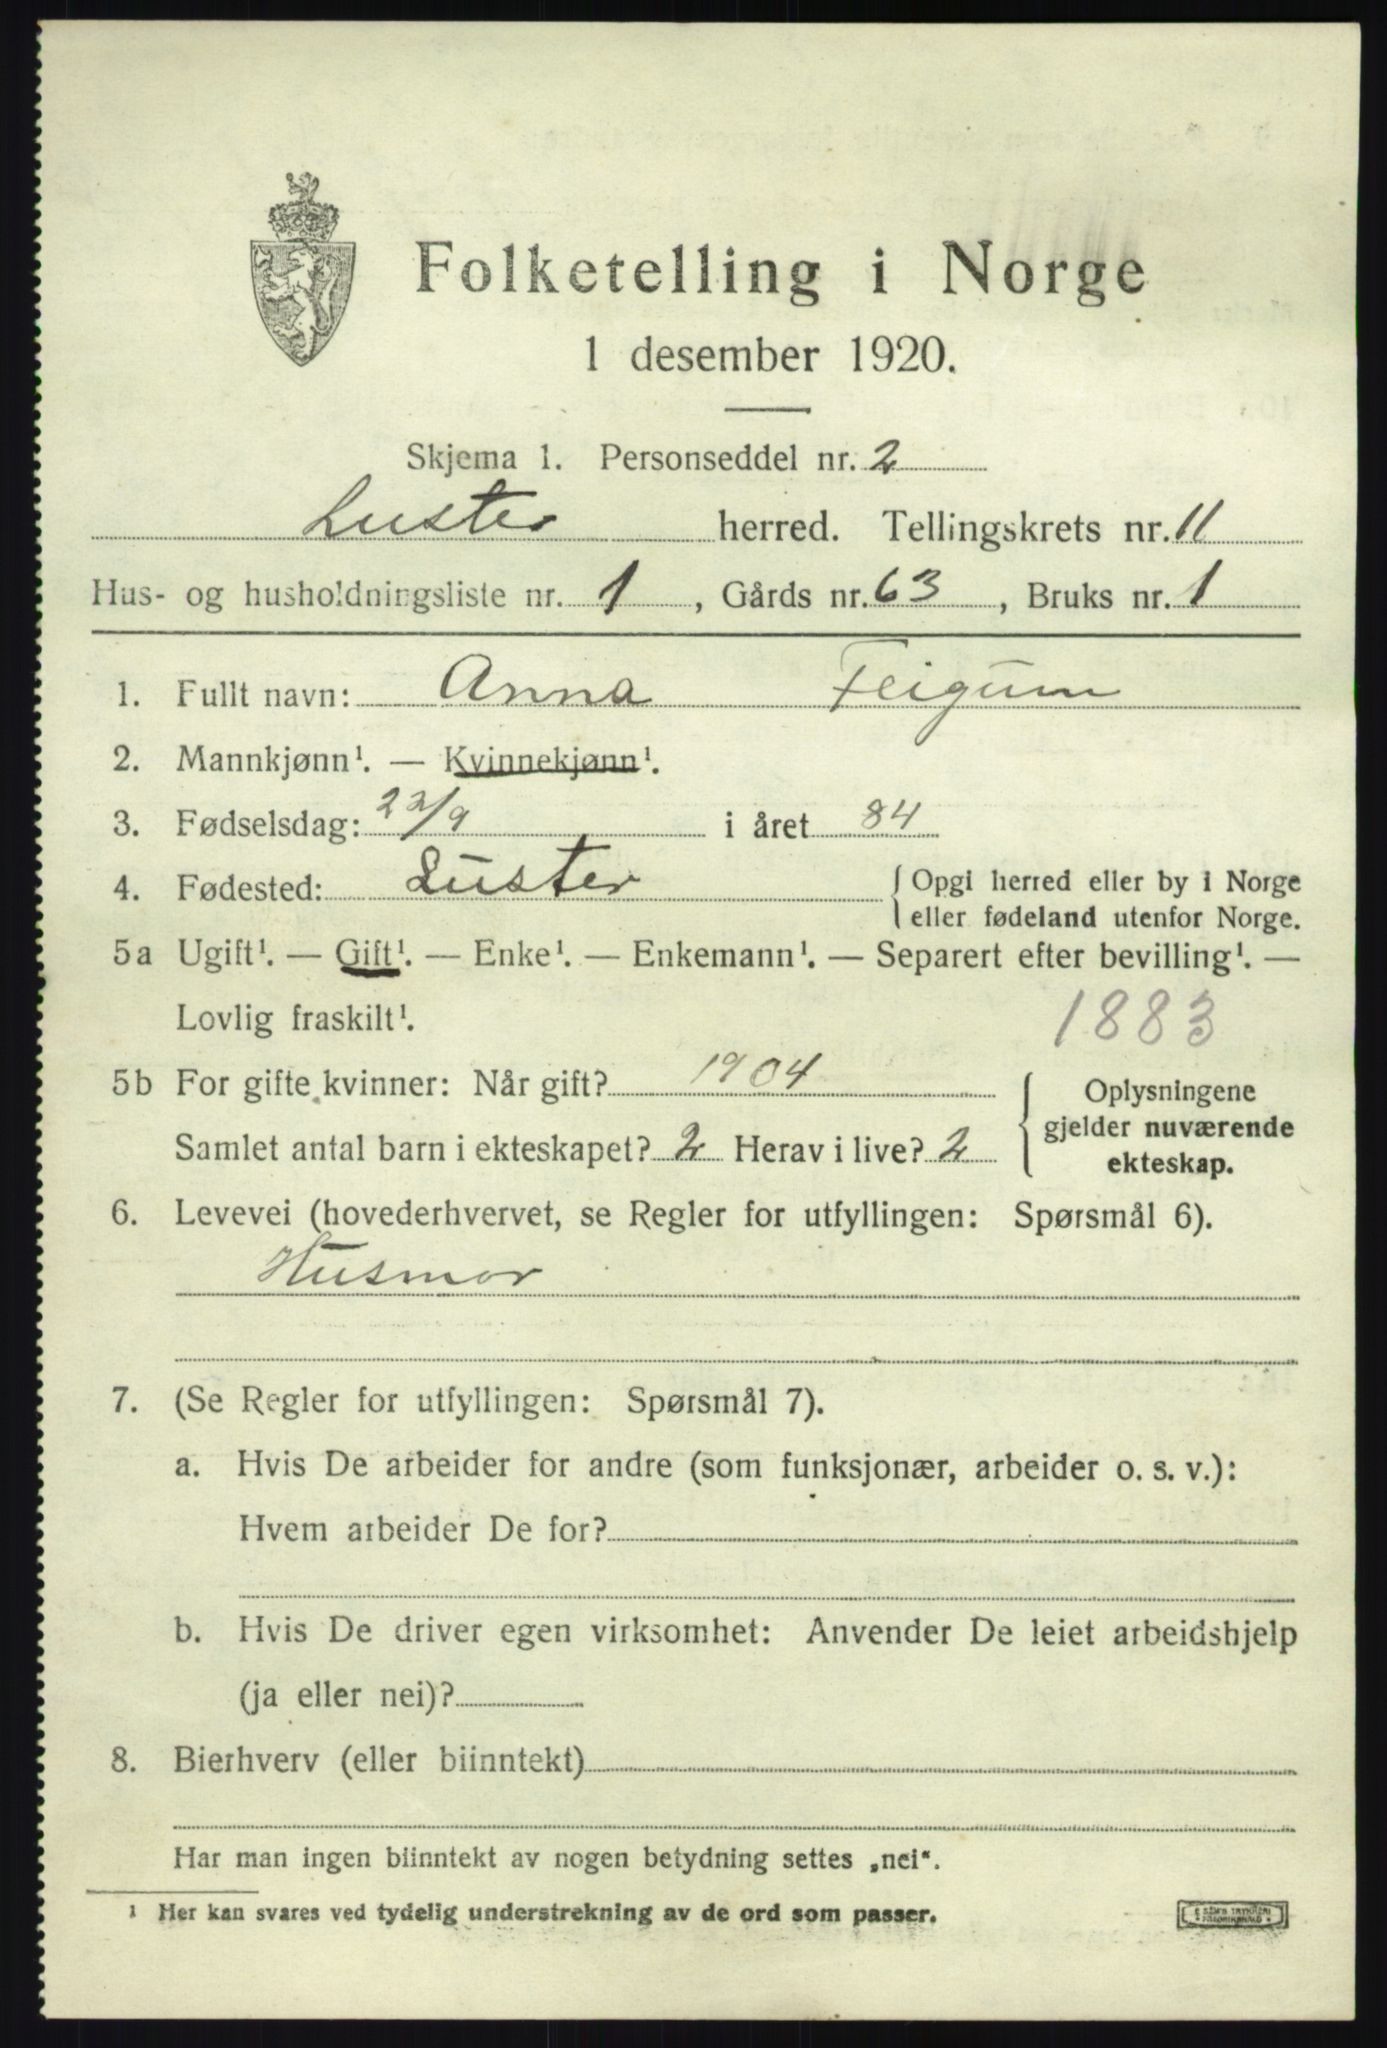 Folketelling i Norge
1 desember 1920.
Skjema 1. Personseddel nr. 2
Luster herred. Tellingskrets nr. 11
Hus- og husholdningsliste nr. 1, Gårds nr. 63, Bruks nr. 1
1. Fullt navn: Anna Feigum
2. Mannkjønn¹. — Kvinnekjønn¹.
3. Fødselsdag: 22/9 i året 84
4. Fødested: Luster {Opgi herred eller by i Norge
eller fødeland utenfor Norge.
5a Ugift¹. — Gift¹. — Enke¹. — Enkemann¹. — Separert efter bevilling¹. —
Lovlig fraskilt¹. 1883
5b For gifte kvinner: Når gift? 1904
Samlet antal barn i ekteskapet? 2 Herav i live? 2
{Oplysningene
gjelder nuværende
ekteskap.
6. Levevei (hovederhvervet, se Regler for utfyllingen: Spørsmål 6).
Husmor
7. (Se Regler for utfyllingen: Spørsmål 7).
a. Hvis De arbeider for andre (som funksjonær, arbeider o. s. v.):
Hvem arbeider De for?
b. Hvis De driver egen virksomhet: Anvender De leiet arbeidshjelp
(ja eller nei)?
8. Bierhverv (eller biinntekt)
Har man ingen biinntekt av nogen betydning settes „nei“.
¹ Her kan svares ved tydelig understrekning av de ord som passer.